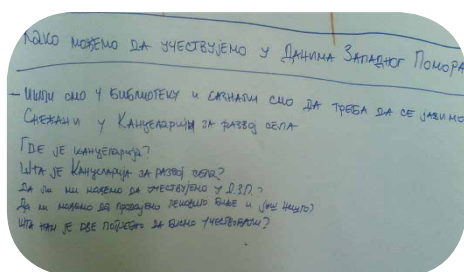 Како можемо да учествујемо у Данима Западног Помора
- Ишли смо у библиотеку и сазнали смо да треба да се јавимо
Снежани у Канцеларију за развој села
Где је канцеларија?
Шта је Канцеларија за развој села?
Да ли ми можемо да учествујемо у Д.З.П.?
Да ли можемо да продајемо лековито биље и још нешто?
Шта нам је све потребно да бисмо учествовали?